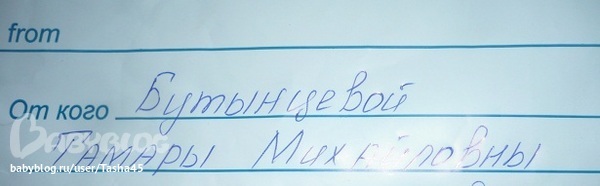 from
От кого Бутынцевой
BABYBLOG
Тамары Михайловны
babyblog.ru/user/Tasha45